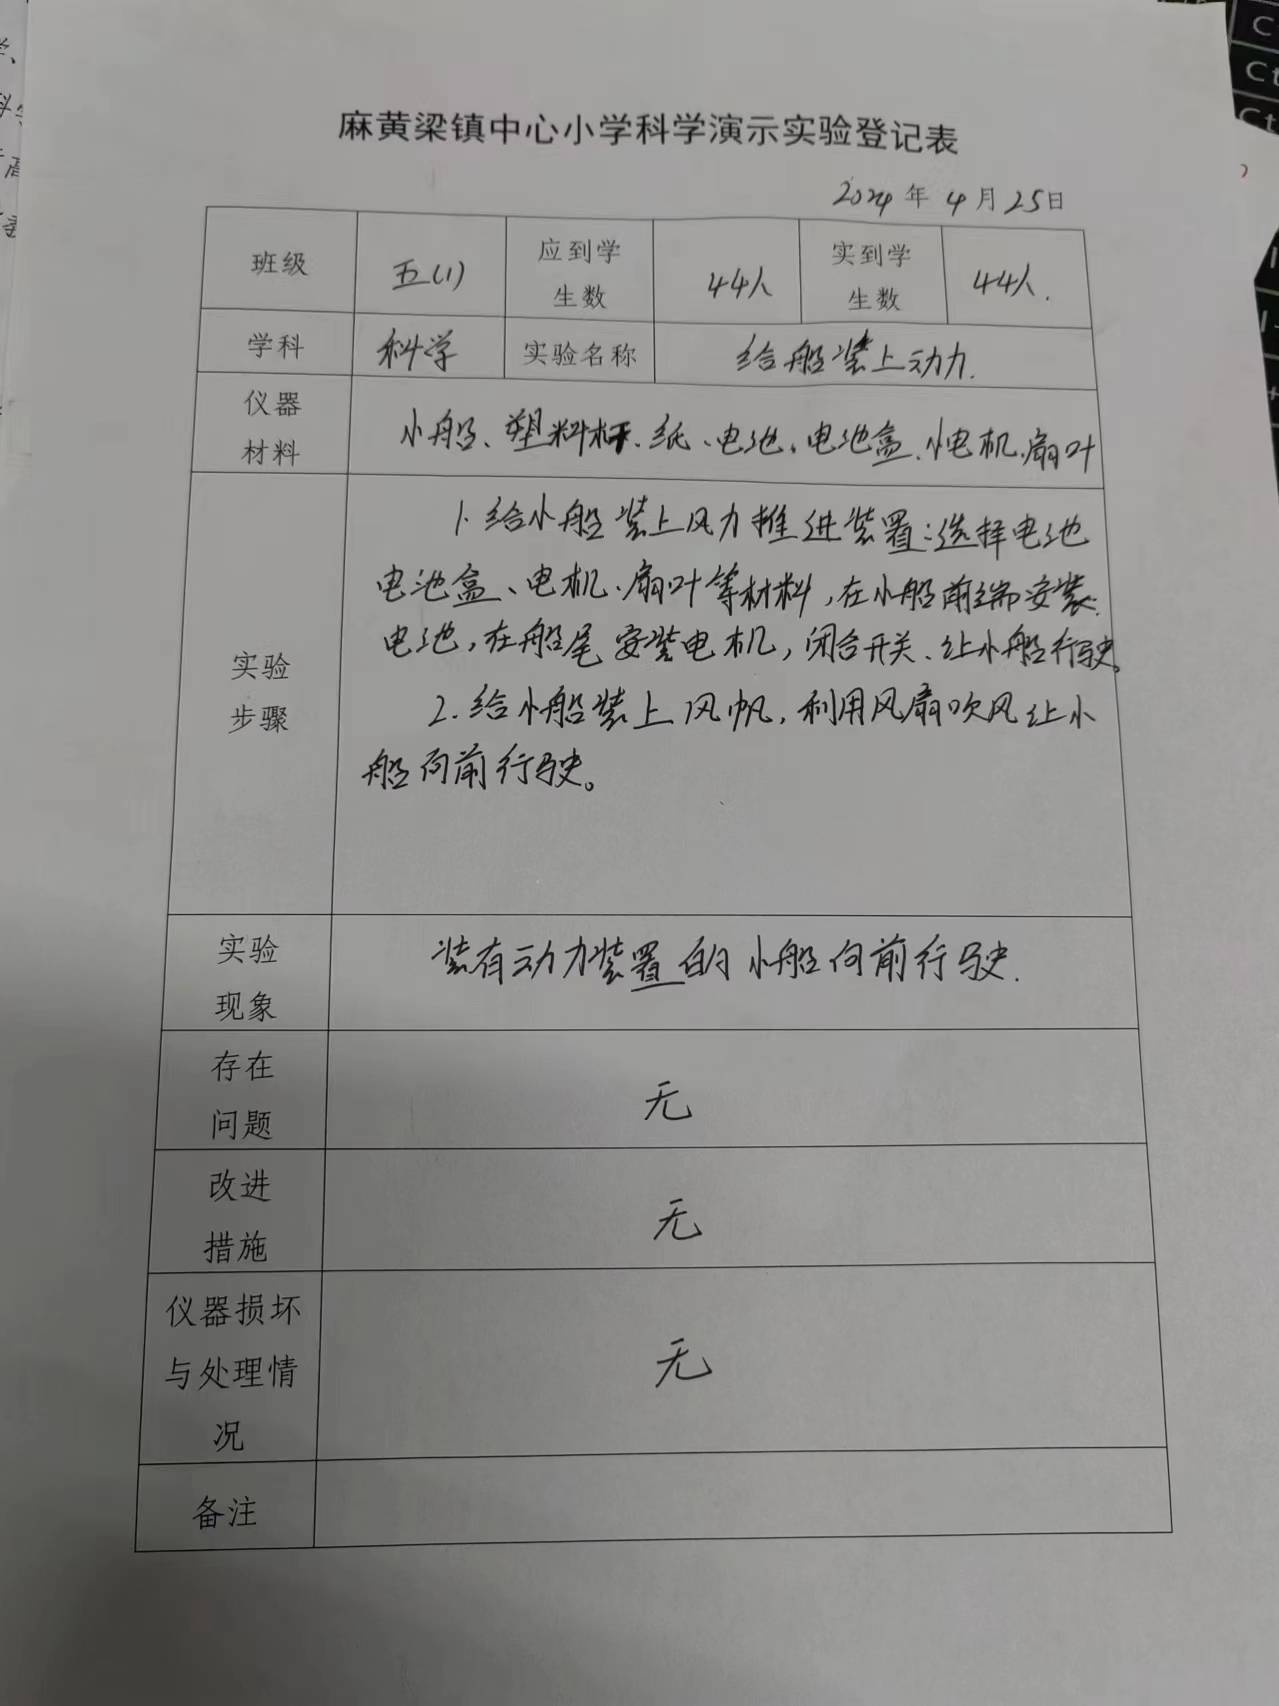 麻黄梁镇中心小学科学演示实验登记表
2024年4月25日
班级 五(1) 应到学生数 44人 实到学生数 44人.
学科 科学 实验名称 给船装上动力.
仪器材料 小船、塑料杯、纸、电池、电池盒、小电机、扇叶
实验步骤
1.给小船装上风力推进装置:选择电池
电池盒、电机、扇叶等材料,在小船前端安装
电池,在船尾安装电机,闭合开关、让小船行驶。
2.给小船装上风帆,利用风扇吹风让小
船向前行驶。
实验现象 装有动力装置的小船向前行驶.
存在问题 无
改进措施 无
仪器损坏与处理情况 无
备注